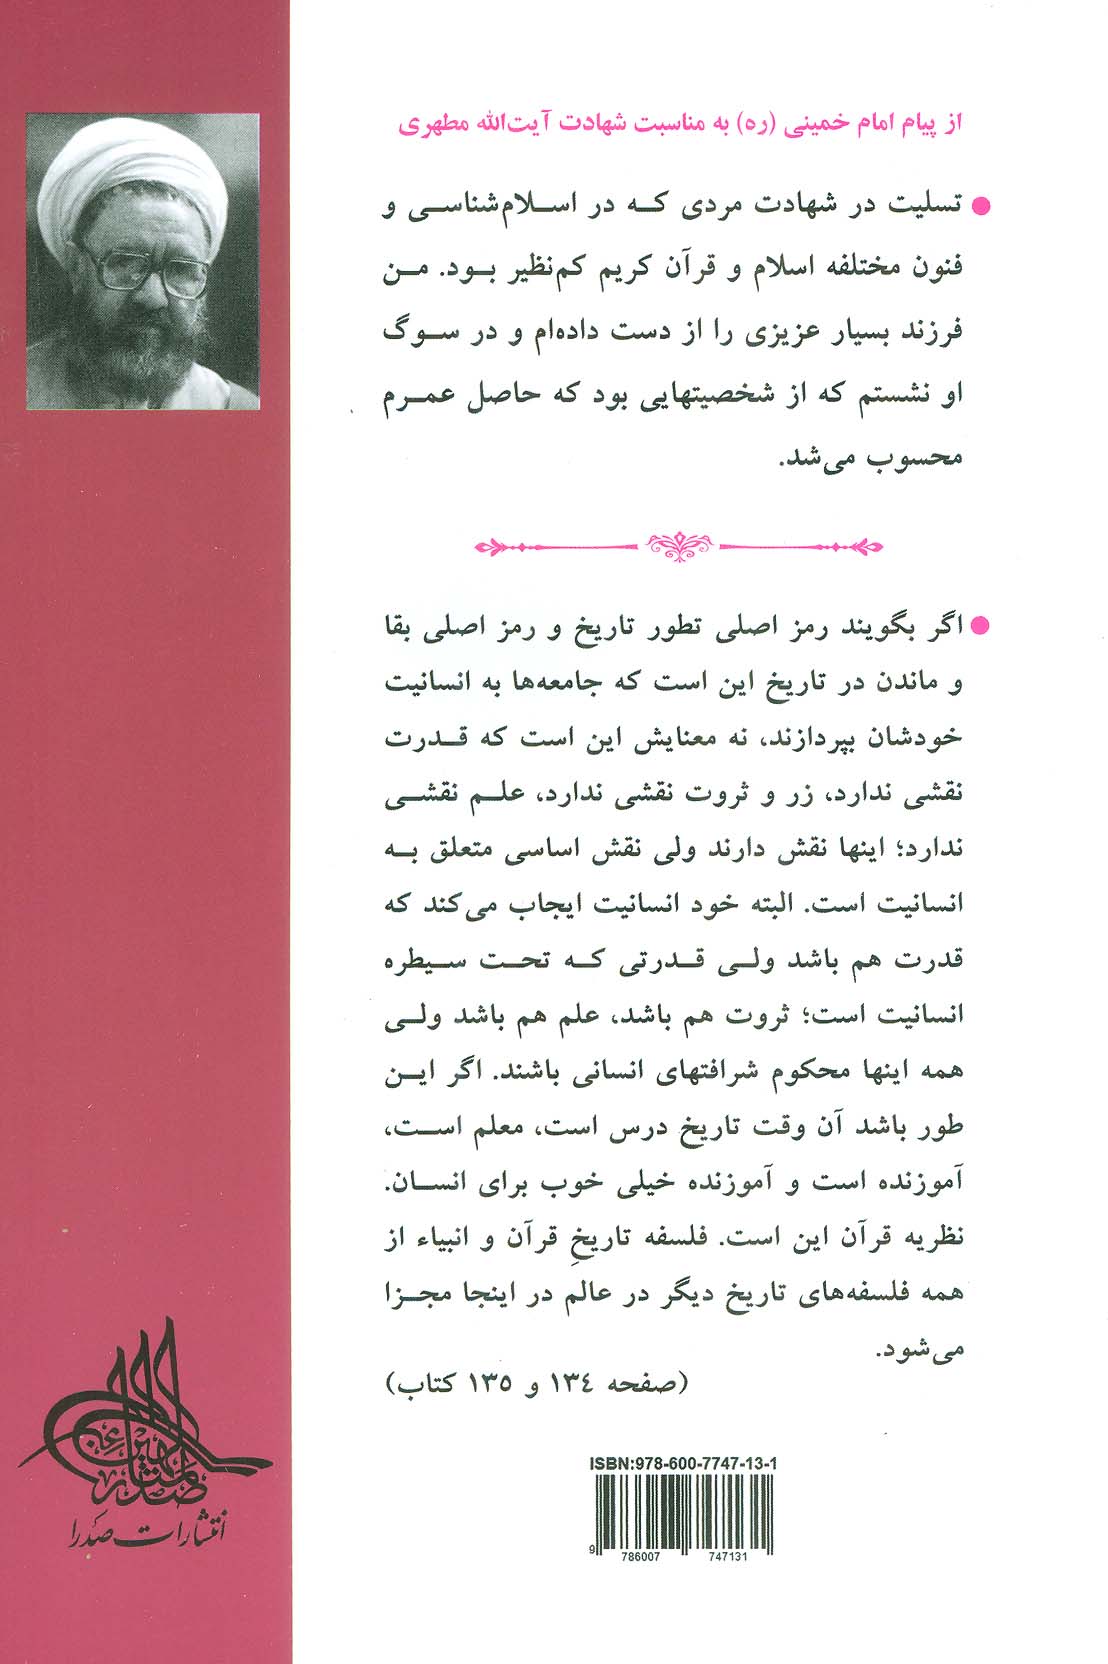 از پیام امام خمینی (ره) به مناسبت شهادت آیت‌الله مطهری
● تسلیت در شهادت مردی که در اسلام‌شناسی و
فنون مختلفه اسلام و قرآن کریم کم‌نظیر بود. من
فرزند بسیار عزیزی را از دست داده‌ام و در سوگ
او نشستم که از شخصیتهایی بود که حاصل عمرم
محسوب می‌شد.
● اگر بگویند رمز اصلی تطور تاریخ و رمز اصلی بقا
و ماندن در تاریخ این است که جامعه‌ها به انسانیت
خودشان بپردازند، نه معنایش این است که قدرت
نقشی ندارد، زر و ثروت نقشی ندارد، علم نقشی
ندارد؛ اینها نقش دارند ولی نقش اساسی متعلق به
انسانیت است. البته خود انسانیت ایجاب می‌کند که
قدرت هم باشد ولی قدرتی که تحت سیطره
انسانیت است؛ ثروت هم باشد، علم هم باشد ولی
همه اینها محکوم شرافتهای انسانی باشند. اگر این
طور باشد آن وقت تاریخ درس است، معلم است،
آموزنده است و آموزنده خیلی خوب برای انسان.
نظریه قرآن این است. فلسفه تاریخِ قرآن و انبیاء از
همه فلسفه‌های تاریخ دیگر در عالم در اینجا مجزا
می‌شود.
(صفحه ۱۳٤ و ۱۳۵ کتاب)
انتشارات صدرا
ISBN:978-600-7747-13-1
9 786007 747131